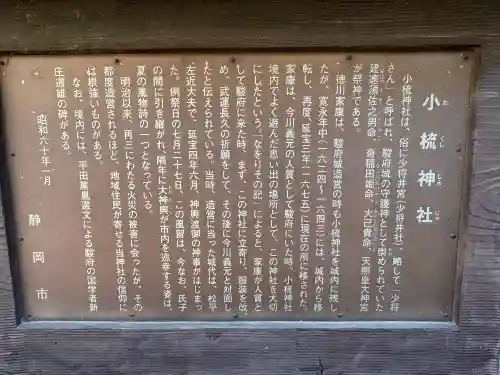 小梳神社
お ぐし じん じゃ
小梳神社は、俗に少将井宮(少将井社)、略して「少将
さん」と呼ばれ、駿府城の守護神として崇められていた
建速須佐之男命、奇稲田姫命、大己貴命、天照皇大神宮
が祭神である。
徳川家康は、駿府城造営の時も小梳神社を城内に残し
たが、寛永年中(一六二四〜一六四三)には、城内から移
転し、再度、延宝三年(一六七五)に現在の所に移された。
家康は、今川義元の人質として駿府にいた時、小梳神社
境内でよく遊んだ思い出の場所として、この神社を大切
にしたという。「なをりその記」によると、家康が人質と
して駿府に来た時、まず、この神社に立寄り、服装を改
め、武運長久の祈願をして、その後に今川義元と対面し
たと伝えられている。当時、造営に当った城代は、松平
左近大夫で、延宝四年六月、神輿渡御の神事がはじまっ
た。例祭日の七月二十七日、この風習は、今なお、氏子
の間に引き継がれ、隔年に大神輿が市内を巡幸する姿は、
夏の風物詩の一つとなっている。
明治以来、再三にわたる火災の被害に会ったが、その
都度造営されるほど、地域住民が寄せる当神社の信仰に
は根強いものがある。
なお、境内には、平田篤胤選文による駿府の国学者新
庄道雄の碑がある。
昭和六十年一月
静岡市